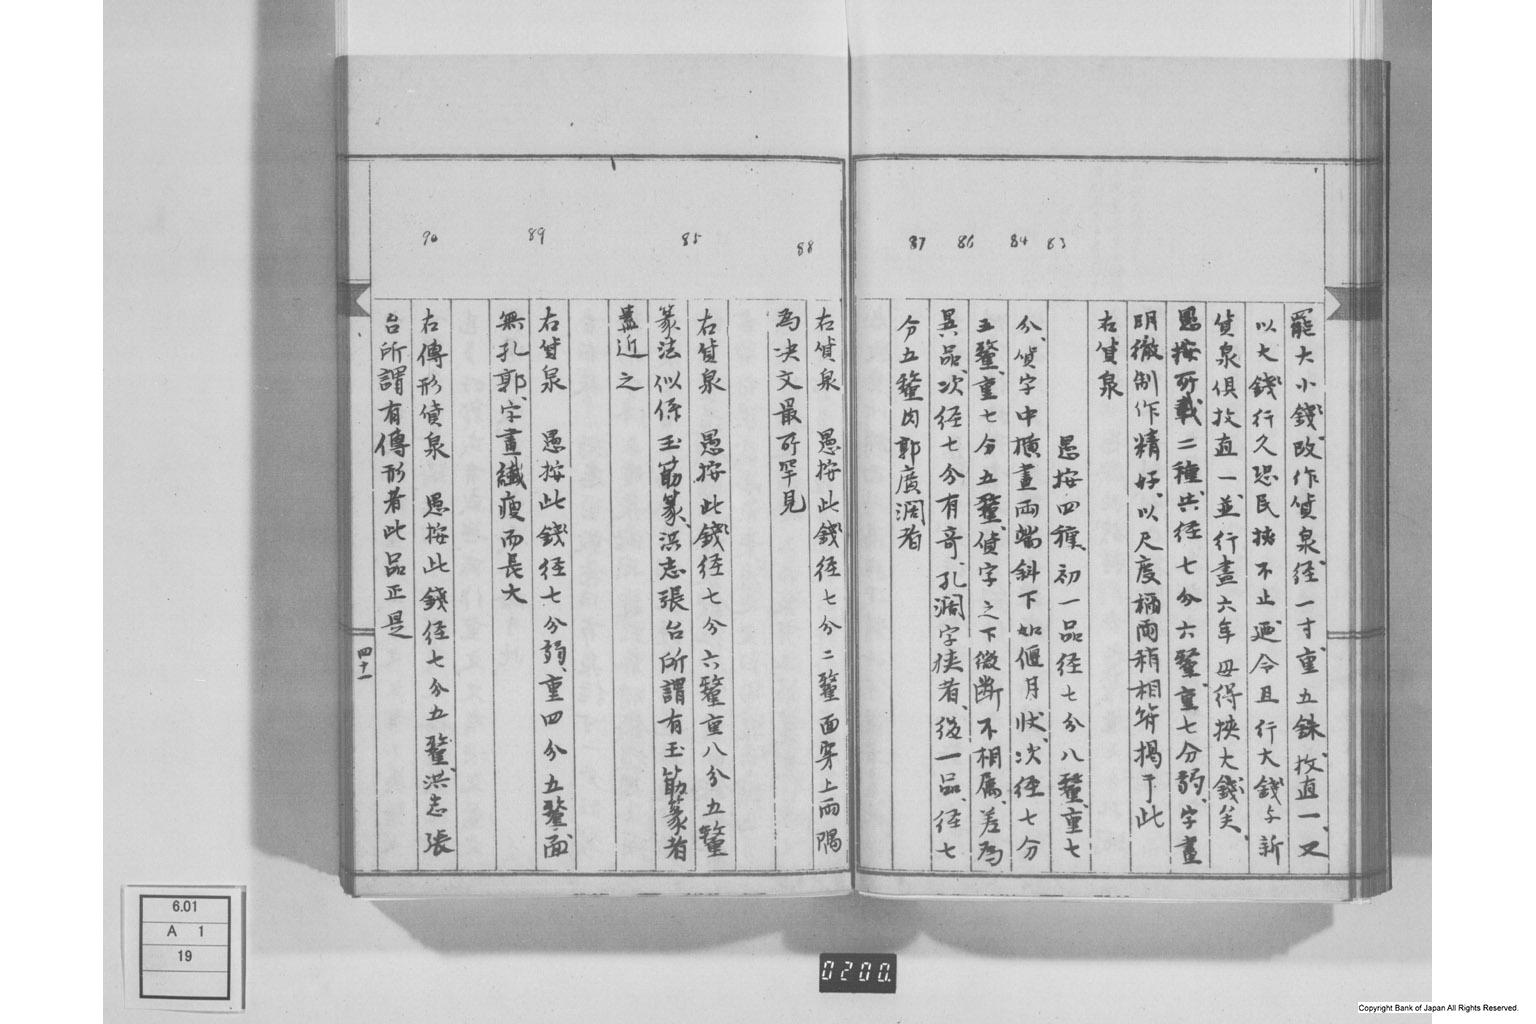 罷大小錢改作貨泉径一寸重五銖枚直一又
以大錢行久恐民挾不止廼令且行大錢与新
貨泉俱枚直一並行盡六年毋得挾大錢矣
愚按所載二種共径七分六釐重七分弱字畫
明徹制作精好以尺度桶両稍相符揭于此
右貨泉
愚按四種初一品径七分八釐重七
分貨字中横畫両端斜下如偃月状次径七分
五釐重七分五釐貨字之下微断不相属差為
異品次径七分有奇孔濶字挟者後一品径七
分五釐肉郭廣濶者
83
84
86
87
右貨泉 愚按此錢径七分二釐面穿上両隅
為决文最所罕見
右貨泉 愚按此錢径七分六釐重八分五釐
篆法似係玉筯篆洪志張台所謂有玉筯篆者
盖近之
右貨泉 愚按此錢径七分弱重四分五釐面
無孔郭字畫纖瘦而長大
右傳形貨泉 愚按此錢径七分五釐洪志張
台所謂有傳形者此品正是
88
85
89
90
四十一
6.01
A 1
19
0200
Copyright Bank of Japan All Rights Reserved.